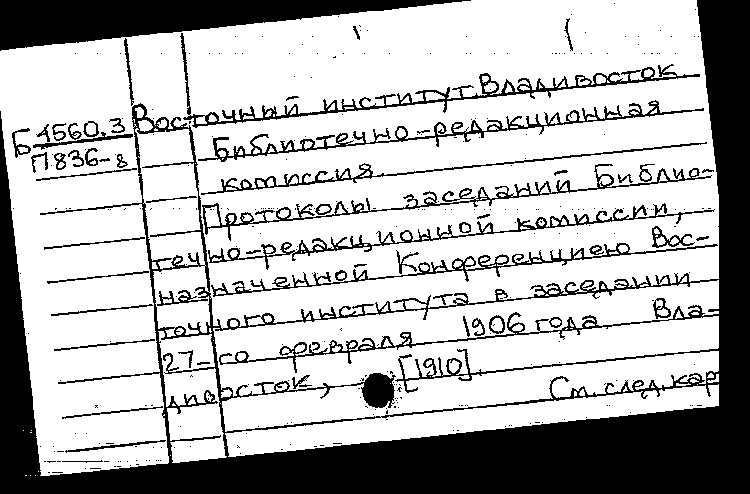 Б 4560.3 Восточный институт. Владивосток.
П836-8 Библиотечно-редакционная
комиссия.
Протоколы заседаний Библио-
течно-редакционной комиссии,
назначенной Конференциею Вос-
точного института в заседании
27-го февраля 1906 года. Вла-
дивосток, [1910].
См. след. кар